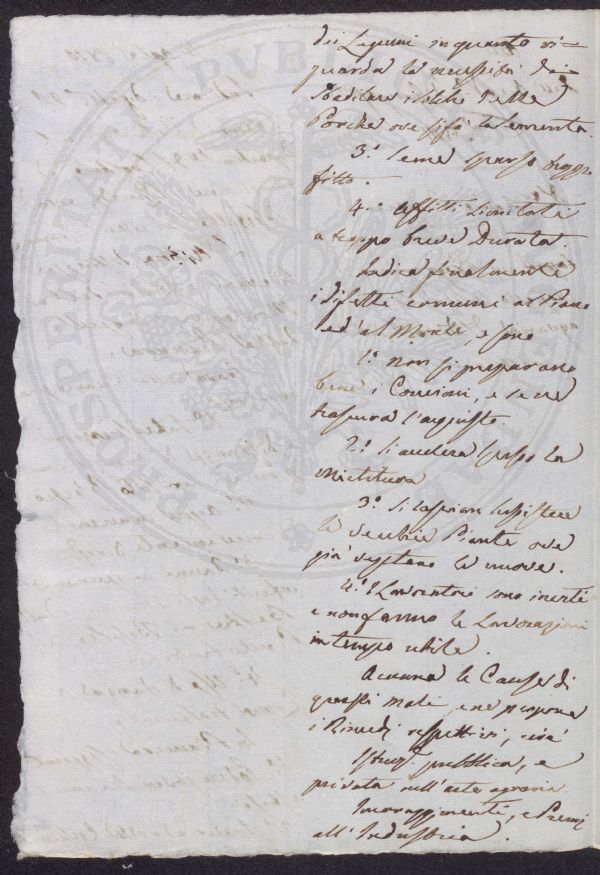 dei Legumi in quanto ri=
guarda la necessità di=
Porche ove si fa la sementa.
3.° Seme sparso troppo
fitto.
4.° Affitti limitati
a troppo breve Durata.
Indica finalmente
i difetti comuni al Piano
ed al Monte, e sono
1.° non si preparano
bene i Concimi, e se ne
trascura l'acquisto.
2.° Si accelera spesso la
Mietitura
3.° Si lasciano sussistere
le vecchie Piante ove
già vegetano le nuove.
4.° I Lavoratori sono inerti
e non fanno le Lavorazioni
in tempo utile.
Accenna le Cause di
questi mali, e ne propone
i Rimedj rispettivi, cioè
Istruz.e pubblica, e
privata nell'arte agraria
Incoraggimenti, e Premj
all'Industria.
PROSPERITATI PUBLICAE